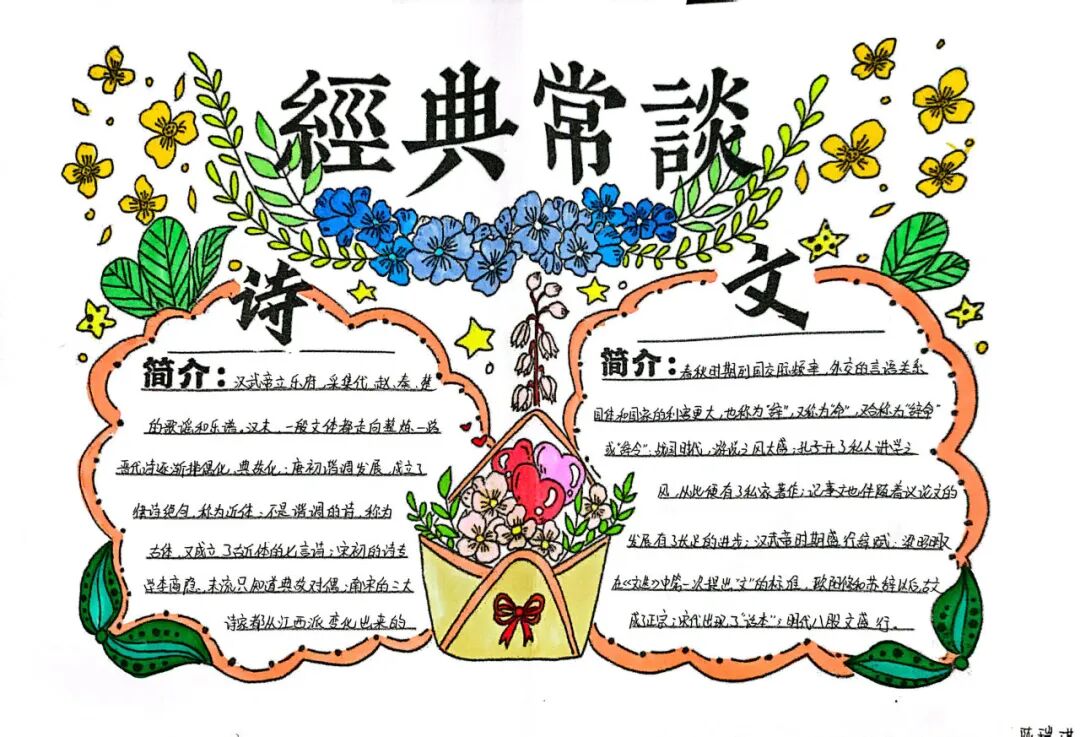 經典常談
诗
简介：汉武帝立乐府，采集代、赵、秦、楚
的歌谣和乐谱。汉末，一般文体都走向整炼一路
两代诗逐渐排偶化，典故化；唐初谐调发展，成立了
律诗绝句，称为近体；不是谐调的诗，称为
古体，又成立了古近体的七言诗；宋初的诗专
学李商隐，末流只知道典故对偶；南宋的三大
诗家都从江西派变化出来的
文
简介：春秋时期列国交际频繁，外交的言语关系
国体和国家的利害更大，也称为“辞”，又称为“命”，又合称为“辞命”
或“辞令”；战国时代，游说之风大盛；孔子开了私人讲学之
风，从此便有了私家著作；记事文也伴随着议论文的
发展有了长足的进步；汉武帝时期盛行辞赋；梁昭明
在《文选》中第一次提出“文”的标准，欧阳修和苏轼以后，古文
成了正宗；宋代出现了“话本”；明代八股文盛行。
陈瑞